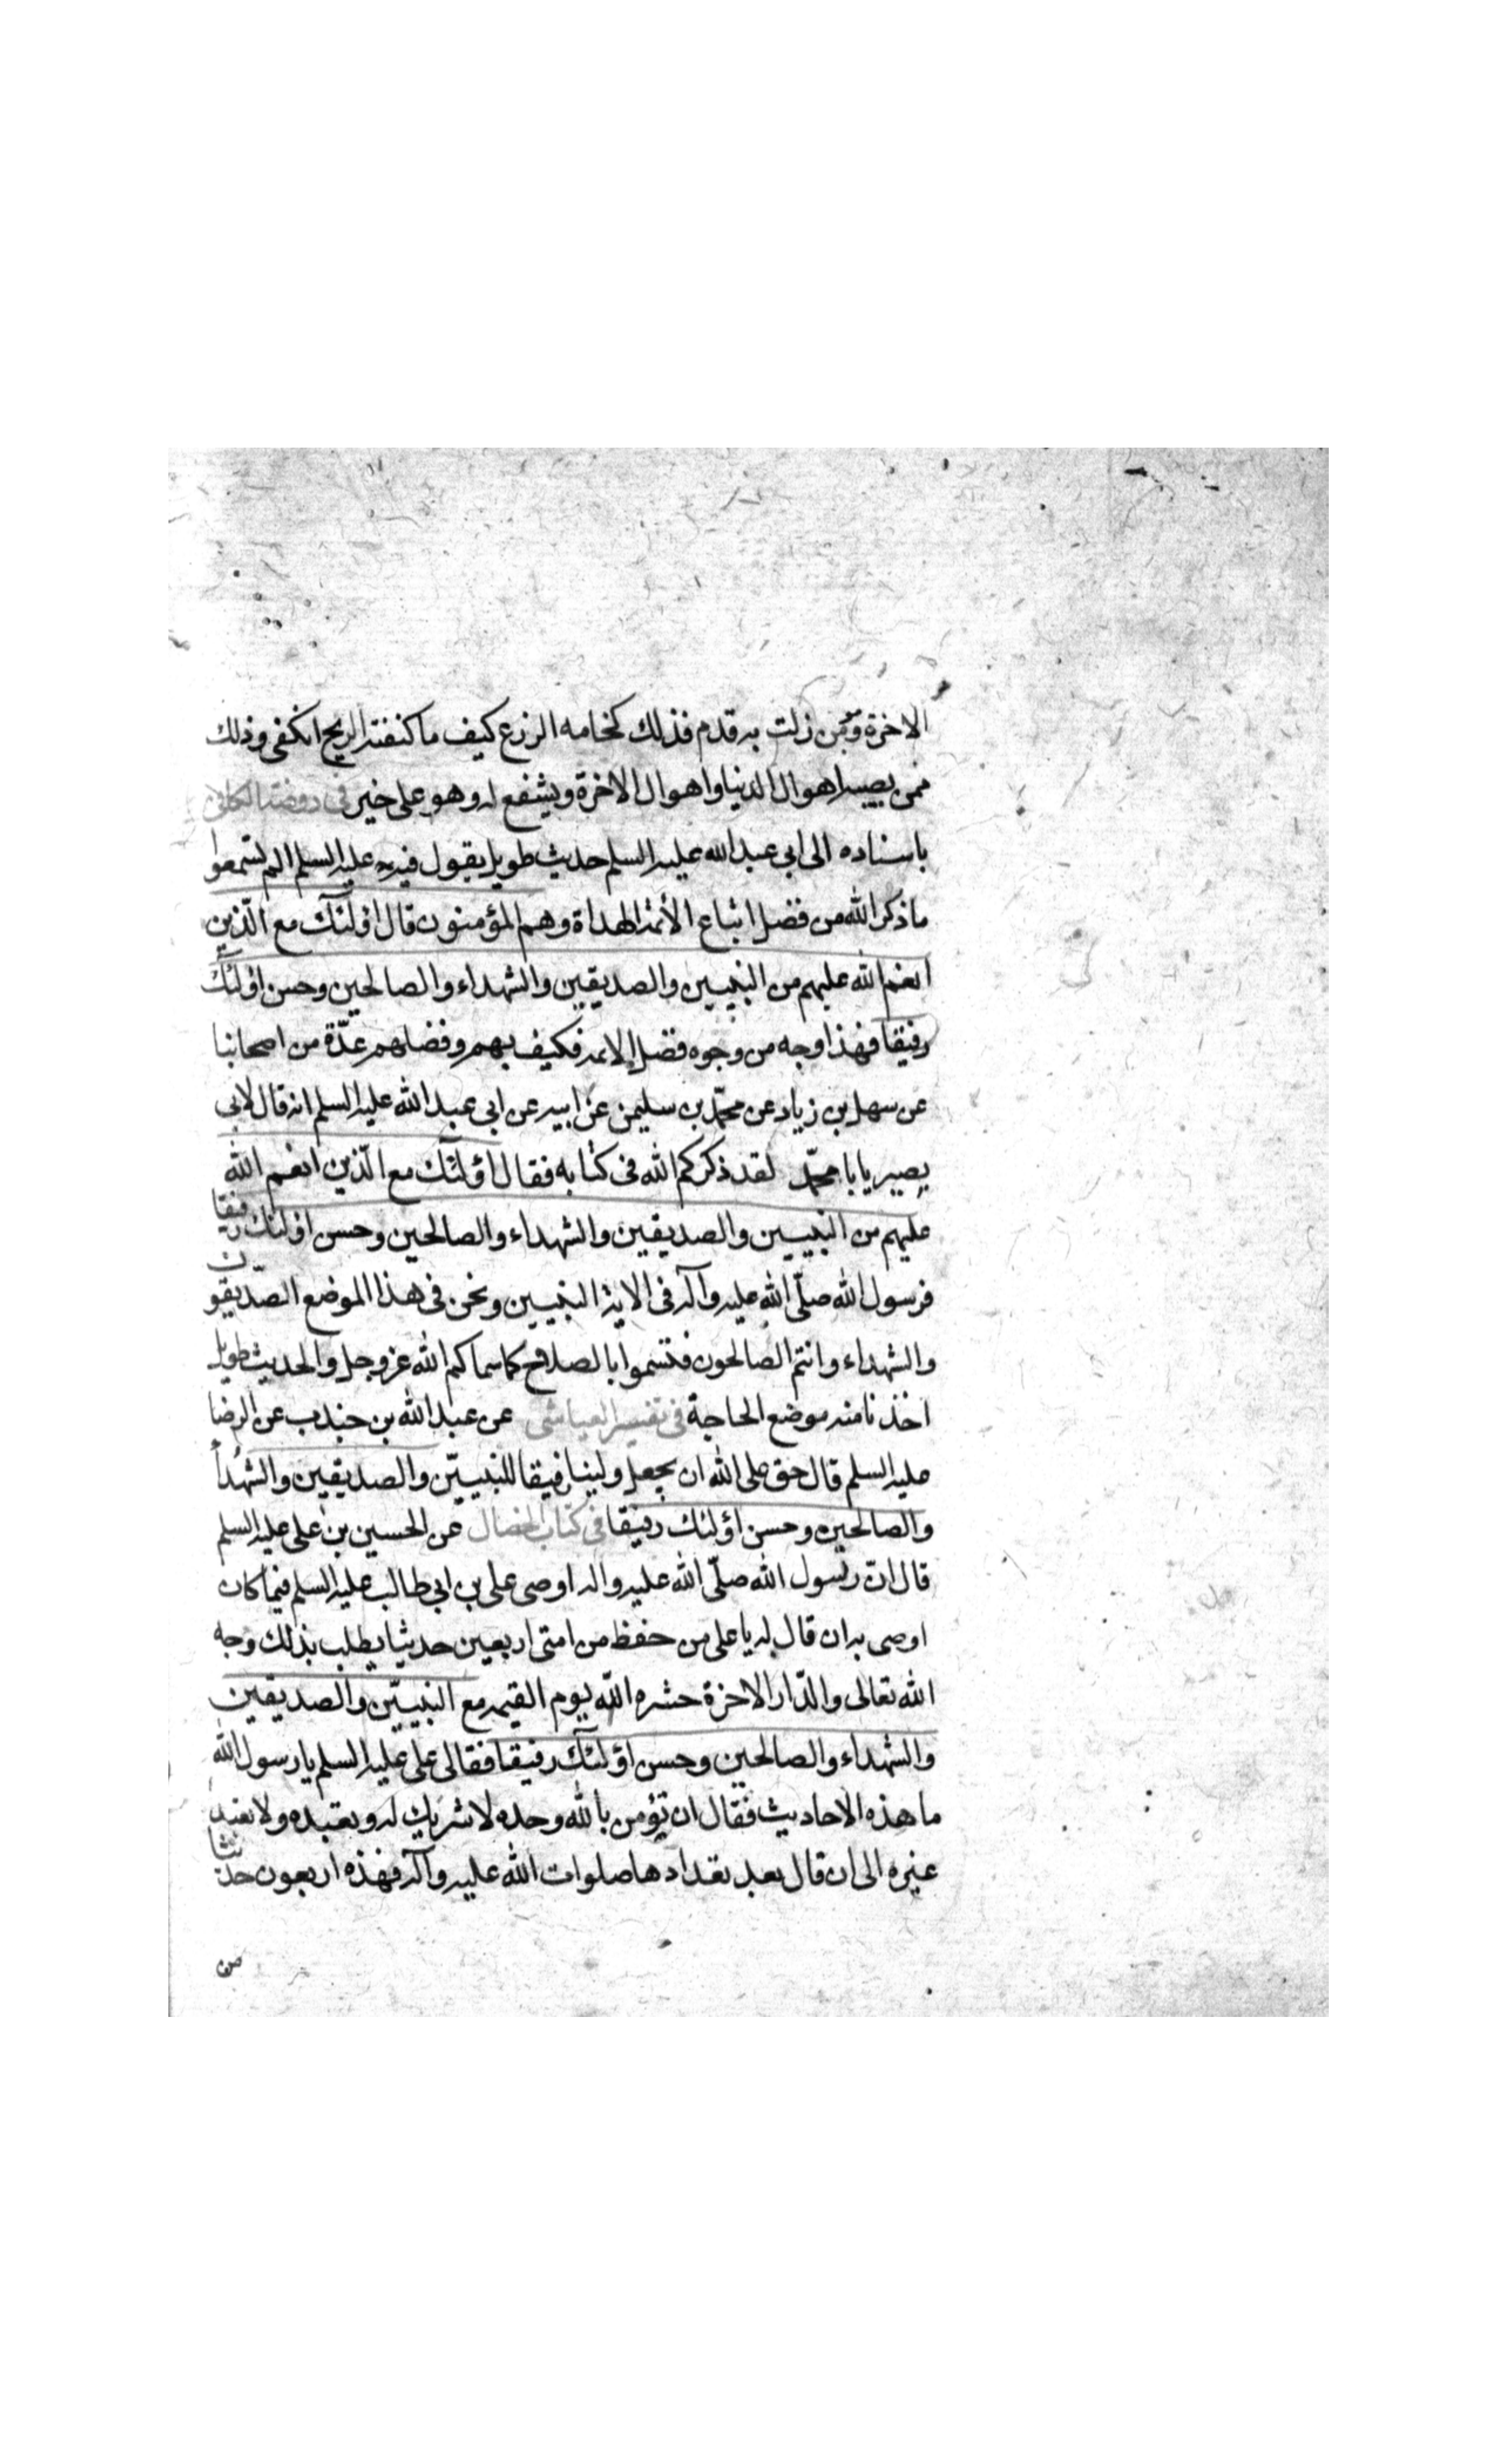 الاخرة ومؤمن زلت به قدم فذلك كخامه الزرع كيف ما كفئته الريح انكفى وذلك
ممن يصيبه اهوال الدنيا واهوال الاخرة ويشفع له وهو على خير فى روضة الكافى
باسناده الى ابى عبد الله عليه السلم حديث طويل يقول فيه عليه السلم الم تسمعوا
ما ذكر الله من فضل اتباع الأئمة الهداة وهم المؤمنون قال اولئك مع الّذين
انعم الله عليهم من النبيين والصديقين والشهداء والصالحين وحسن اولئك
رفيقا فهذا وجه من وجوه فضل الائمه فكيف بهم وفضلهم عدّة من اصحابنا
عن سهل بن زياد عن محمّد بن سليمن عن ابيه عن ابى عبد الله عليه السلم انه قال لابى
بصير يا با محمّد لقد ذكركم الله فى كتابه فقال اولئك مع الّذين انعم الله
عليهم من النبيين والصديقين والشهداء والصالحين وحسن اولئك رفيقا
فرسول الله صلّى الله عليه وآله فى الاية النبيين ونحن فى هذا الموضع الصدّيقون
والشهداء وانتم الصالحون فتسموا بالصلاح كما سماكم الله عز وجل والحديث طويل
اخذنا منه موضع الحاجة فى تفسير العياشى عن عبد الله بن جندب عن الرضا
عليه السلم قال حق على الله ان يجعل ولينا رفيقا للنبييّن والصديقين والشهدأ
والصالحين وحسن اولئك رفيقا فى كتاب الخصال عن الحسين بن على عليه السلم
قال انّ رسول الله صلّى الله عليه واله اوصى على بن ابى طالب عليه السلم فيما كان
اوصى به ان قال له يا على من حفظ من امتى اربعين حديثا يطلب بذلك وجه
الله تعالى والدّار الاخرة حشره الله يوم القيمه مع النبييّن والصديقين
والشهداء والصالحين وحسن اولئك رفيقا فقال على عليه السلم يا رسول الله
ما هذه الاحاديث فقال ان تؤمن بالله وحده لا شريك له وتعبده ولا تعبد
غيره الى ان قال بعد تعدادها صلوات الله عليه وآله فهذه اربعون حديثا